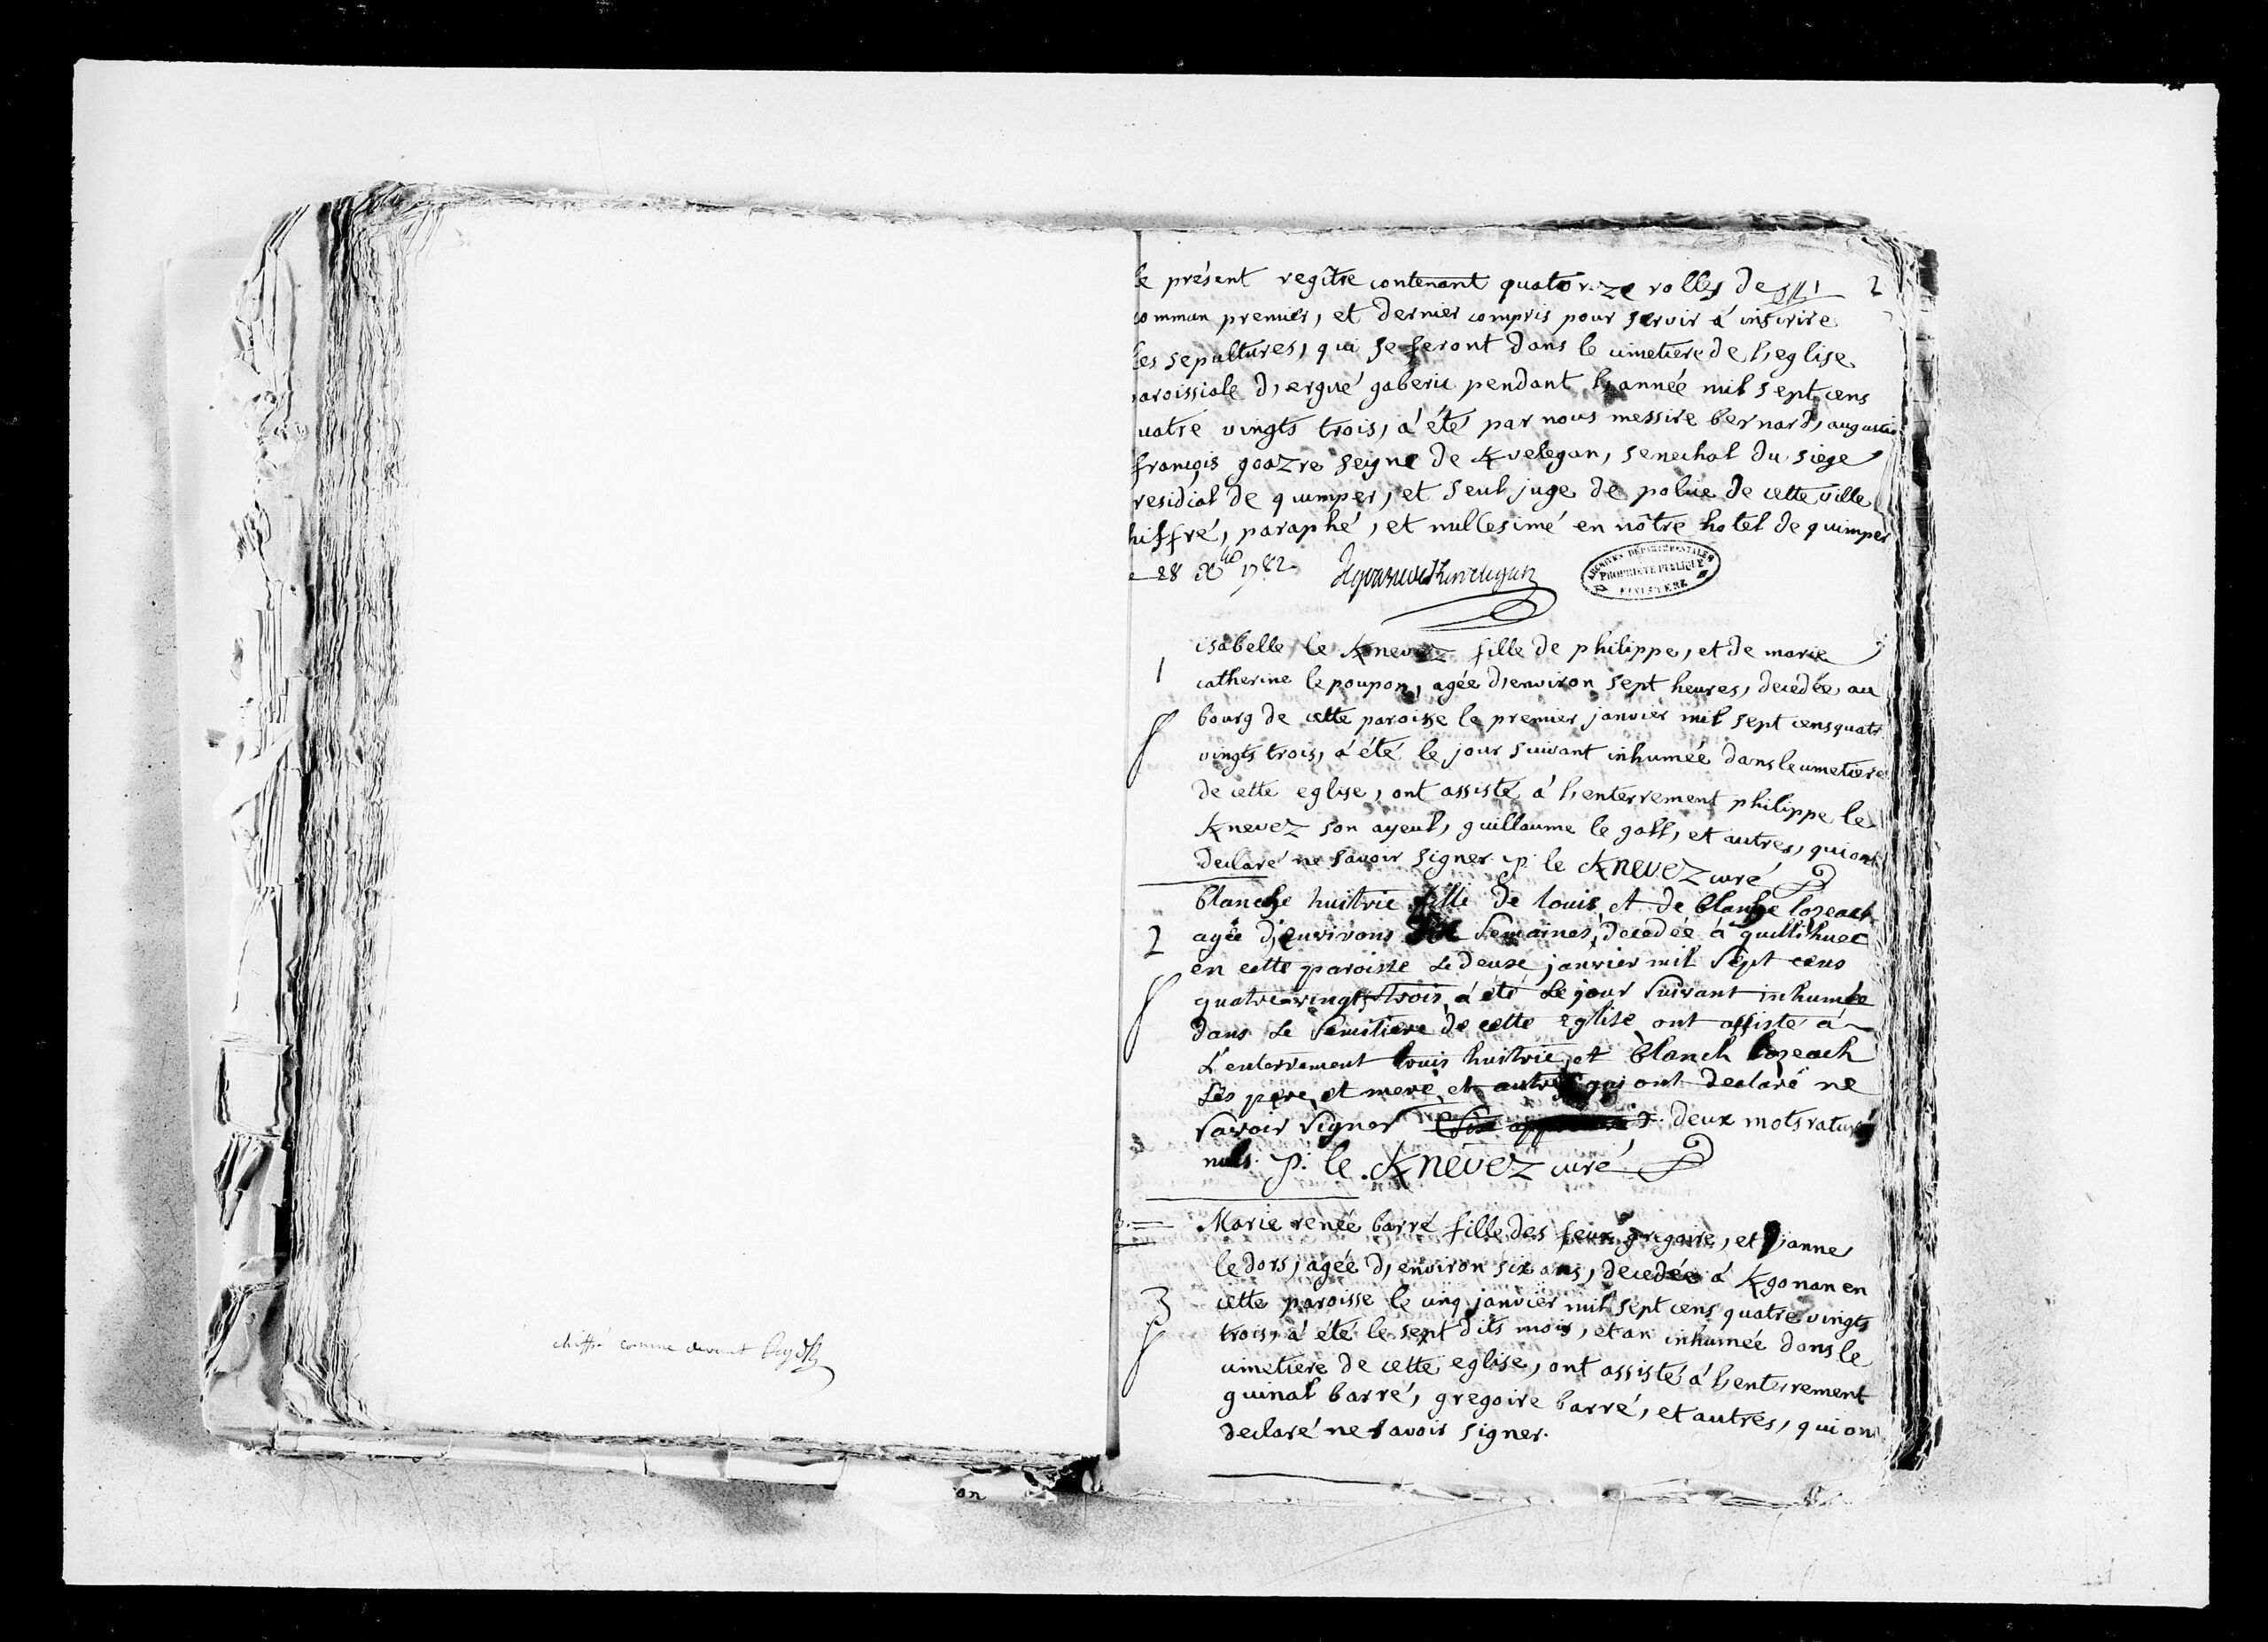 chiffré comme devant
le présent regître contenant quatorze rolles de 2
comman premier, et dernier compris pour servir á inscrire
les sepultures, qui se feront dans le cimetiere de l,eglise
aroissiale d,ergué gaberic pendant l,année mil sept cens
uatre vingts trois, á été par nous messire bernard, augustin
françois goazre seigne de Kvelegan, senechal du siege
residial de quimper, et seul juge de police de cette ville
hiffré, paraphé, et millesimé en nôtre hotel de quimper
28 Xbre 1782
ARCHIVES DÉPARTEMENTALES
PROPRIÉTÉ PUBLIQUE
FINISTÈRE
1 isabelle le Knevez fille de philippe, et de marie
catherine le poupon, agée d,environ sept heures, decedée au
bourg de cette paroisse le premier janvier mil sept cens quatr
vingts trois, á été le jour suivant inhumée dans le cimetiere
de cette eglise, ont assisté á l,enterrement philippe le
Knevez son ayeul, guillaume le goff, et autres, qui ont
declaré ne savoir signer. p. le Knevez curé
blanche huitric fille de louis et de blanche lozeach
2 agée d,environs Six Semaines, decedée á quillihuec
en cette paroisse Le deuxe janvier mil Sept cens
quatre-vingts trois á été Le jour Suivant inhumée
dans Le Semitiere de cette Eglise ont assisté á
L'enterrement louis huitric et blanch lozeach
Ses pere et mere et autres qui ont declaré ne
Savoir Signer deux mots raturé
nuls. p. le Knévez curé
3. Marie renée barré fille des feux gregoire, et janne
le dors, agée d,environ six ans, decedée á Kgonan en
3 cette paroisse le cinq janvier mil sept cens quatre vingts
trois, á été le sept dits mois, et an inhumée dans le
cimetiere de cette eglise, ont assisté á l,enterrement
guinal barré, gregoire barré, et autres, qui on
declaré ne savoir signer.